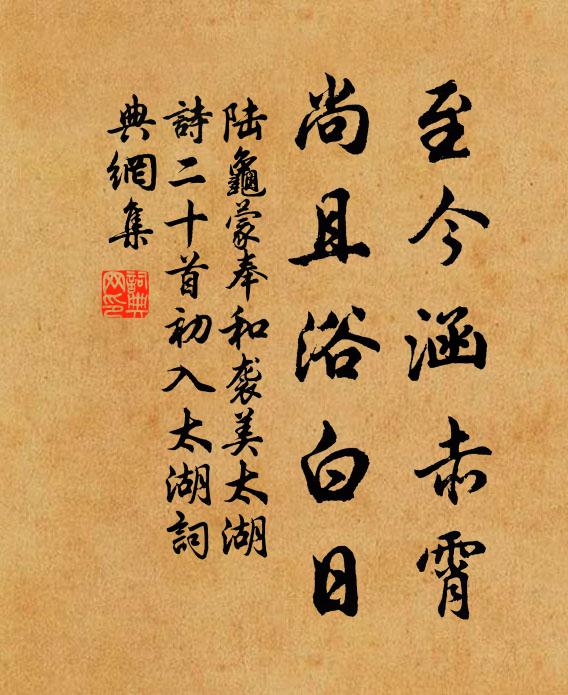 至今涵赤霄
尚且浴白日
陆龜蒙奉和袭美太湖
詩二十首初入太湖詞
典網集
詞典网印